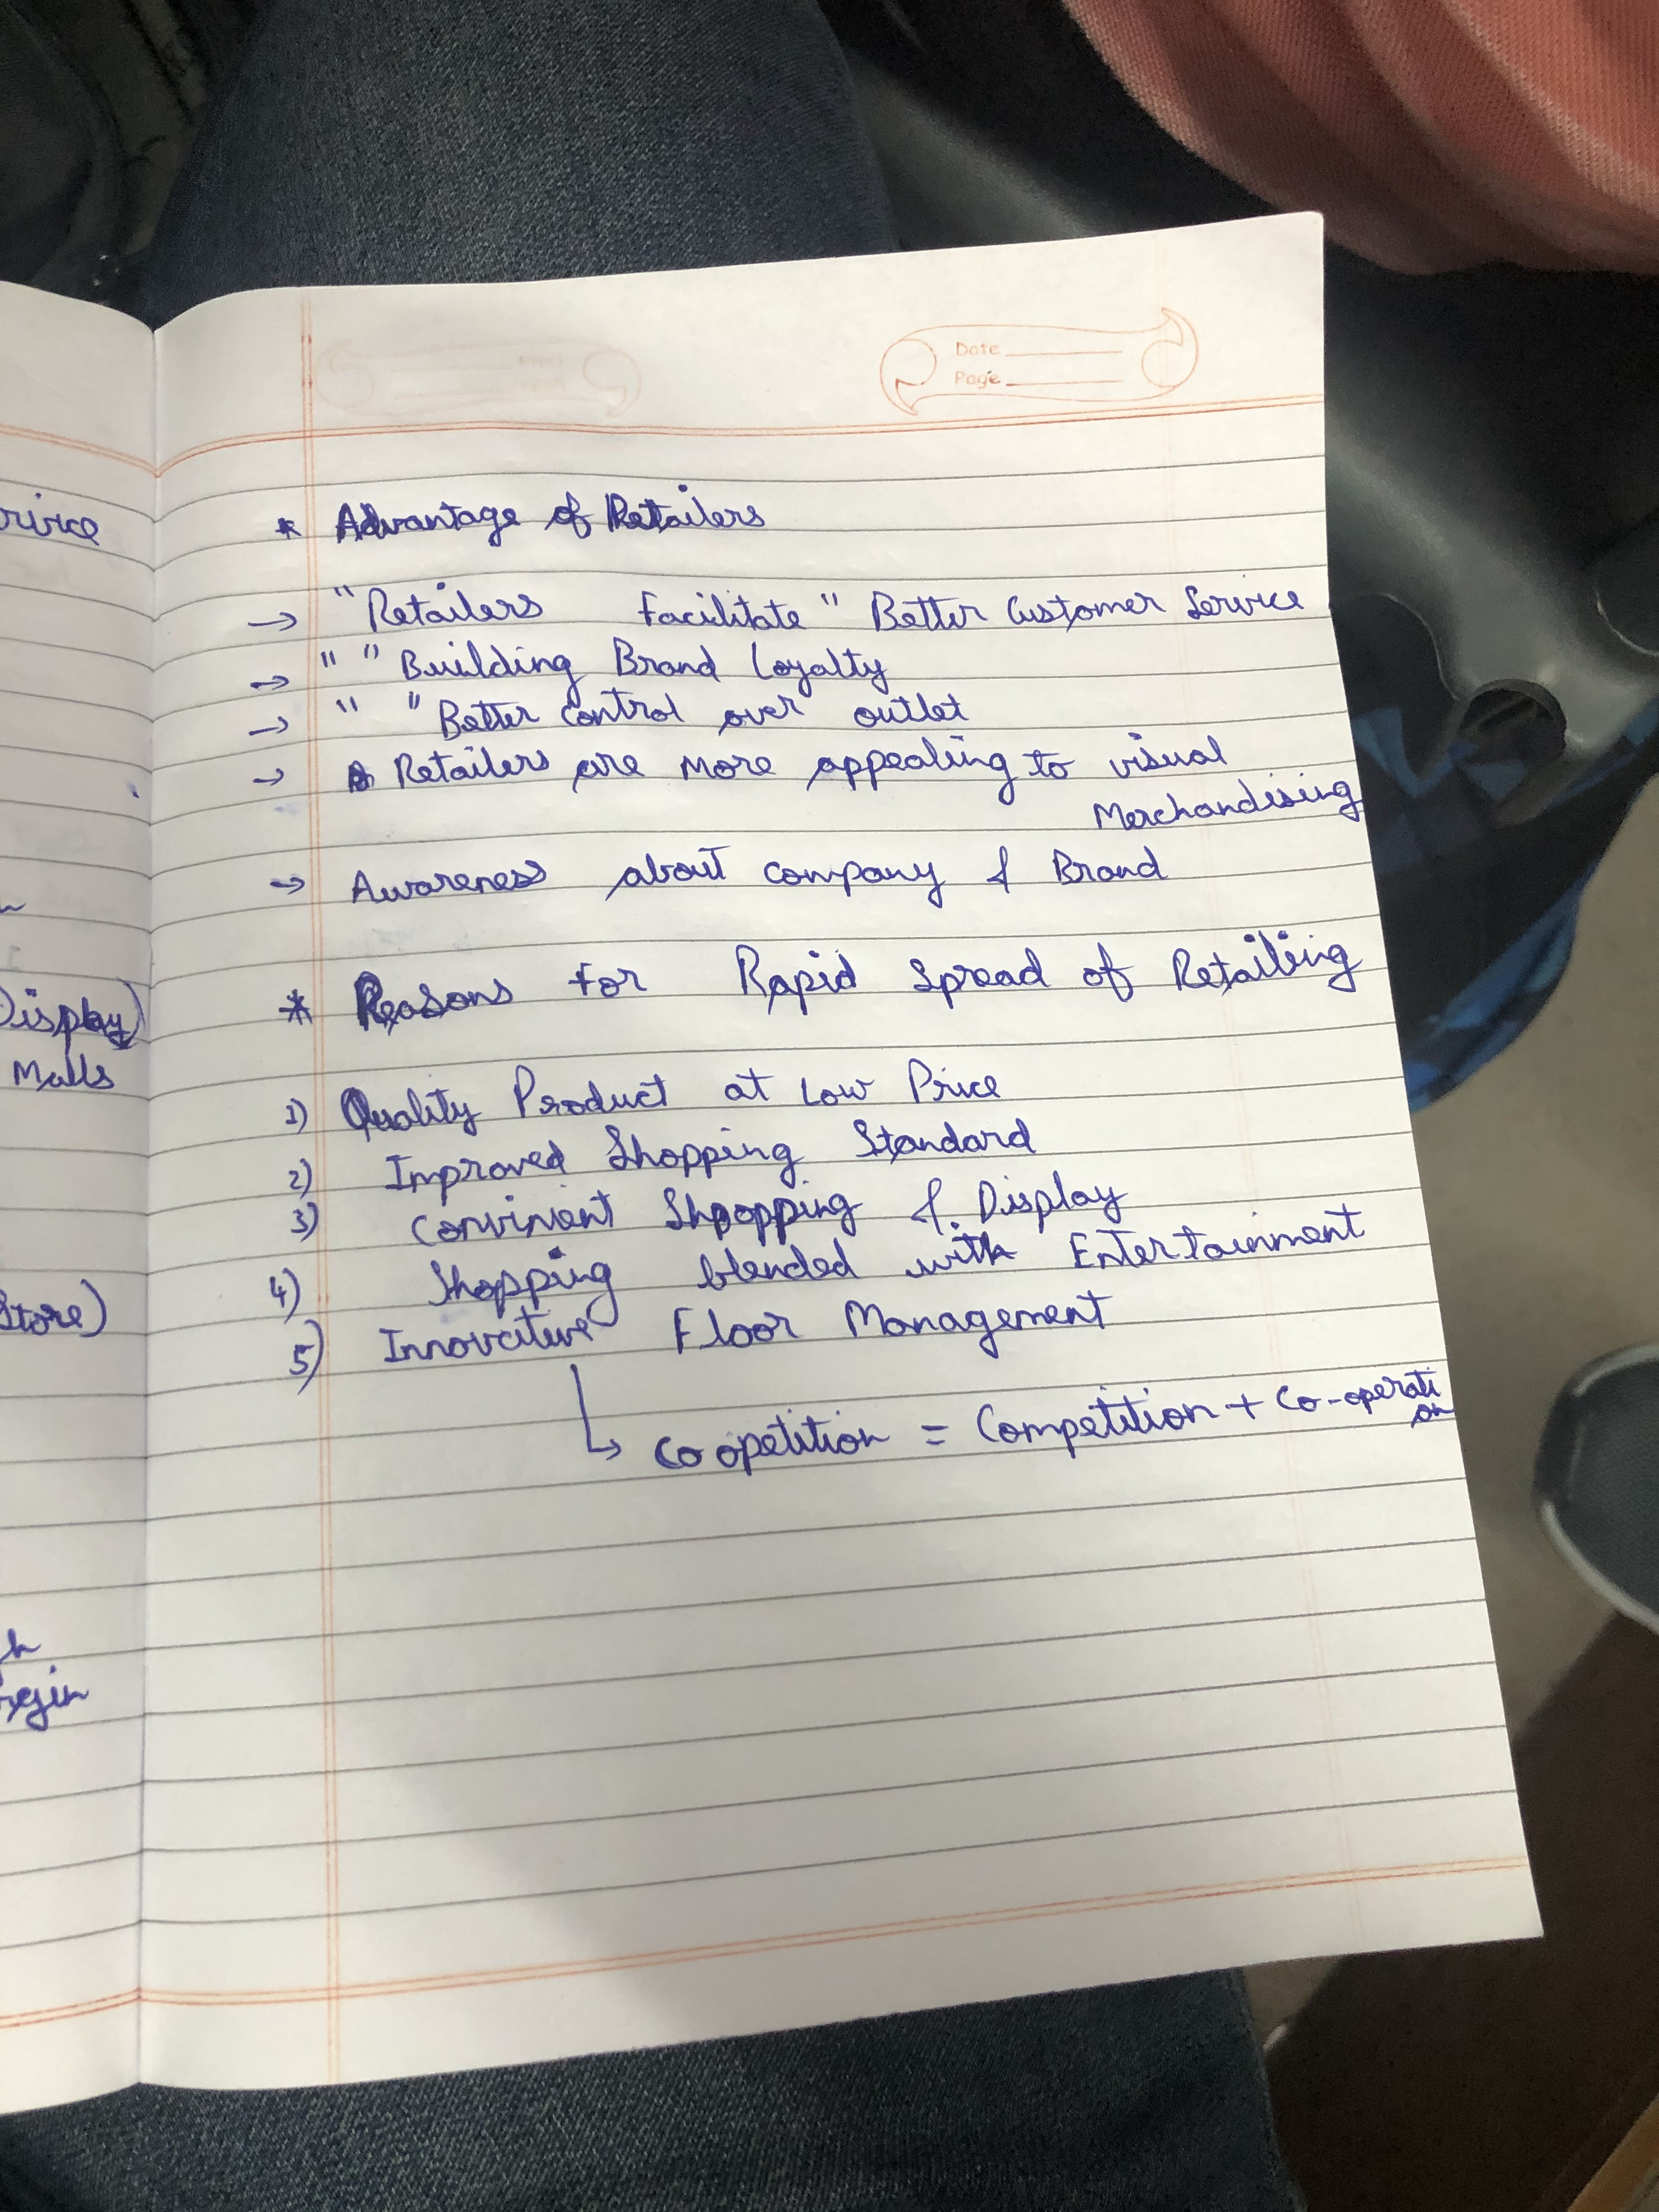 Date
Page
* Advantage of Retailers
→ "Retailers Facilitate" Better Customer Service
→ " " Building Brand Loyalty
→ " " Better control over outlet
→ Retailers are more appealing to visual
Merchandising
→ Awareness about company & Brand
* Reasons for Rapid Spread of Retailing
1) Quality Product at Low Price
2) Improved Shopping Standard
3) Convinient Shpopping & Display
4) Shopping blended with Entertainment
5) Innovative Floor Management
↳ Co opetition = Competition + Co-operati
on
Display)
Malls
Store)